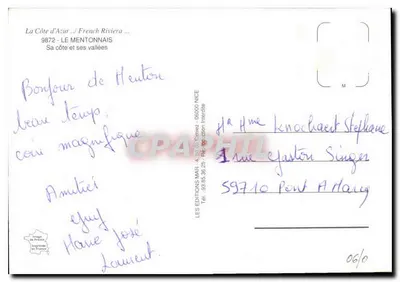 La Côte d'Azur ../ French Riviera ...
9872 - LE MENTONNAIS
Sa côte et ses vallées
Bonjour de Menton
beau temps.
coin magnifique
Amitiés
Guy
Marie José
Laurent.
LES EDITIONS MAR
06000 NICE
M
Stéphane
1 rue Gaston Singer
59710 Pont A Marcq
CPAPHIL
06/0